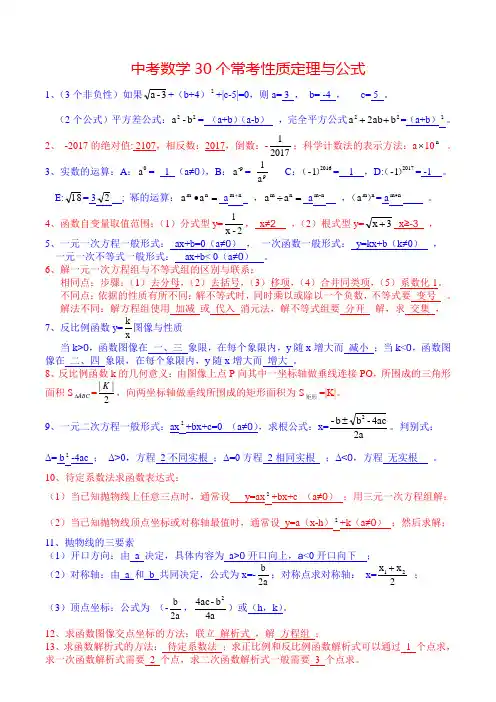 中考数学30个常考性质定理与公式
1、(3个非负性)如果√(a-3)+(b+4)²+|c-5|=0,则a= 3 , b= -4 , c= 5 。
(2个公式)平方差公式:a²-b²= (a+b)(a-b) ,完全平方公式a²+2ab+b²=(a+b)²。
2、 -2017的绝对值: 2107,相反数:2017,倒数:-1/2017;科学计数法的表示方法:a×10ⁿ 。
3、实数的运算:A:a⁰= 1 (a≠0),B:a⁻ᵖ= 1/aᵖ C:(-1)²⁰¹⁶= 1 ,D:(-1)²⁰¹⁷= -1 。
E:√18=3√2 ;幂的运算:aᵐ•aⁿ= aᵐ⁺ⁿ ,aᵐ÷aⁿ= aᵐ⁻ⁿ ,(aᵐ)ⁿ= aᵐ*ⁿ 。
4、函数自变量取值范围:(1)分式型y=1/(x-2), x≠2 ,(2)根式型y=√(x+3) x≥-3 ,
5、一元一次方程一般形式: ax+b=0(a≠0) , 一次函数一般形式: y=kx+b(k≠0) ,
一元一次不等式一般形式: ax+b<0(a≠0) 。
6、解一元一次方程组与不等式组的区别与联系:
相同点:步骤:(1)去分母,(2)去括号,(3)移项,(4)合并同类项,(5)系数化1。
不同点:依据的性质有所不同;解不等式时,同时乘以或除以一个负数,不等式要 变号 。
解法不同:解方程组使用 加减 或 代入 消元法,解不等式组要 分开 解,求 交集 ,
7、反比例函数y=k/x图像与性质
当k>0,函数图像在 一、三 象限,在每个象限内,y随x增大而 减小 ;当k<0,函数图
像在 二、四 象限,在每个象限内,y随x增大而 增大 。
8、反比例函数k的几何意义:由图像上点P向其中一坐标轴做垂线连接PO,所围成的三角形
面积S△ABC=|K|/2、向两坐标轴做垂线所围成的矩形面积为S矩形=|K|。
9、一元二次方程一般形式:ax²+bx+c=0 (a≠0),求根公式:x=(-b±√(b²-4ac))/2a。判别式:
Δ= b²-4ac ; Δ>0,方程 2不同实根 ;Δ=0方程 2相同实根 ;Δ<0,方程 无实根 。
10、待定系数法求函数表达式:
(1)当已知抛物线上任意三点时,通常设 y=ax²+bx+c (a≠0) ;用三元一次方程组解;
(2)当已知抛物线顶点坐标或对称轴最值时,通常设 y=a(x-h)²+k(a≠0) ;然后求解;
11、抛物线的三要素
(1)开口方向:由 a 决定,具体内容为 a>0开口向上,a<0开口向下 ;
(2)对称轴:由 a 和 b 共同决定,公式为x=-b/2a;对称点求对称轴: x=(x₁+x₂)/2 ;
(3)顶点坐标:公式为 (-b/2a,(4ac-b²)/4a)或(h,k)。
12、求函数图像交点坐标的方法:联立 解析式 ,解 方程组 ;
13、求函数解析式的方法: 待定系数法 ;求正比例和反比例函数解析式可以通过 1 个点求,
求一次函数解析式需要 2 个点,求二次函数解析式一般需要 3 个点求。